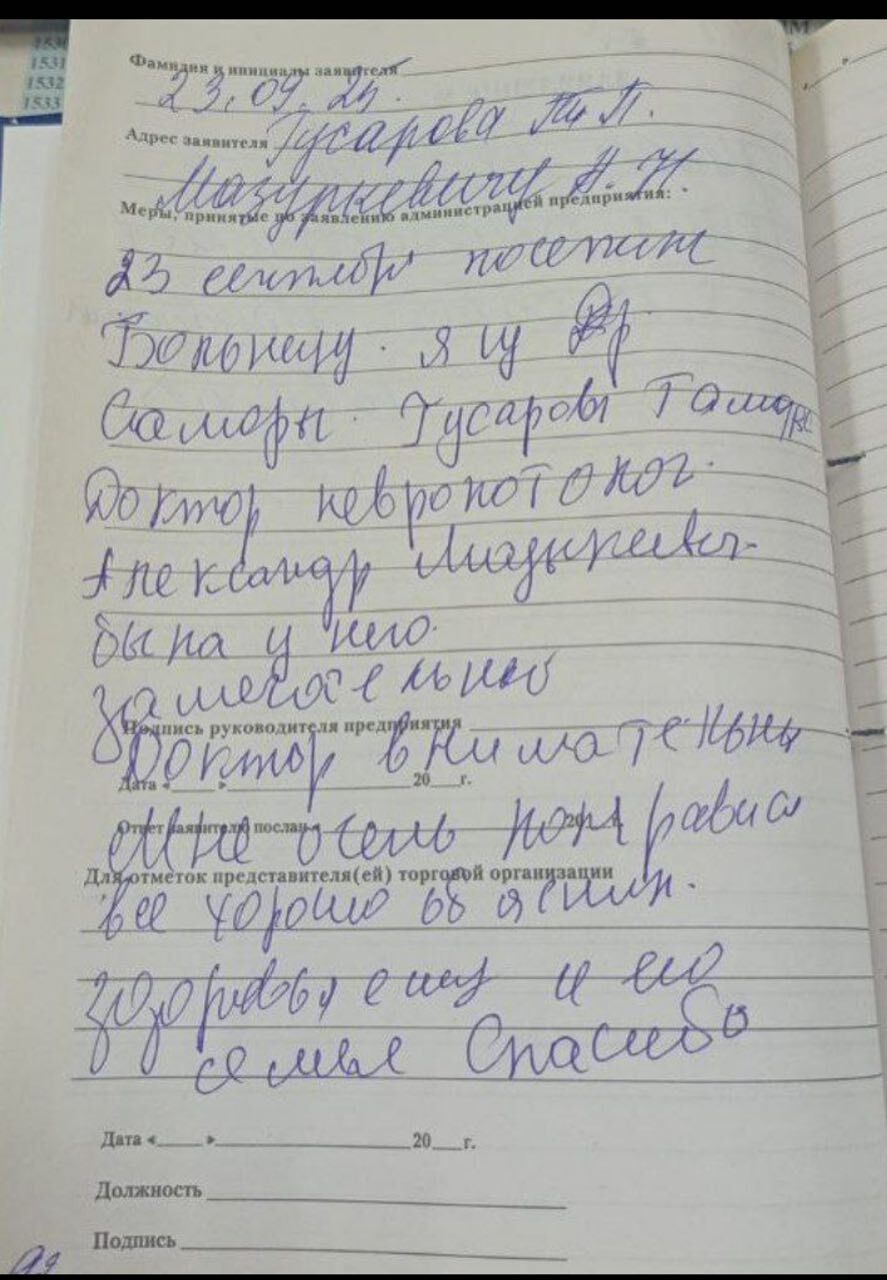 1530
1531
1532
1533
Фамилия и инициалы заявителя
23.09.25.
Адрес заявителя Гусарова Т. П.
Мазуркевичу А. Н
Меры, принятые по заявлению администрацией предприятия:
23 сентябр посетила
Больницу. я из
Самары. Гусарова Тамара
Доктор невропотолог.
Александр Мазыркевич.
была у него.
замечательно
Подпись руководителя предприятия
Доктор внимательны
Дата «___» ___ 20__г.
Ответ заявителю послан
Мне очень понравился
Для отметок представителя(ей) торговой организации
все хорошо об яснил.
здоровья ему и его
семье Спасибо
Дата «___» ___ 20__г.
Должность
Подпись